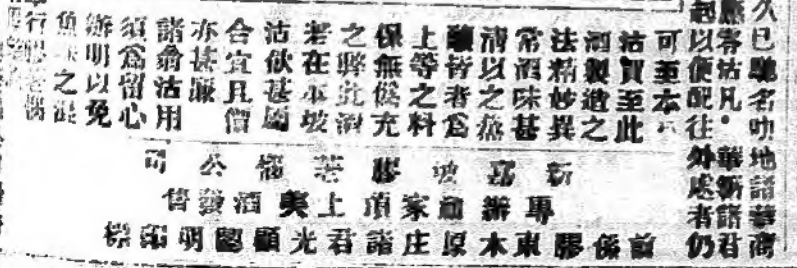 久已馳名叻地諸華商
應客沽凡。華僑諸君
起以便配往外處者仍
可至本
沽買至此
酒製造之
法精妙異
常酒味甚
清以之蒸
釀皆者爲
上等之料
保無僞充
之弊此酒
若在本坡
沽飲甚
合宜且價
亦甚廉
諸翁沽用
須爲留心
辦明以免
魚之混
新嘉坡膠若公司
專辦家頂上美酒發售
前係膠東木原庄諸君光顧認明標